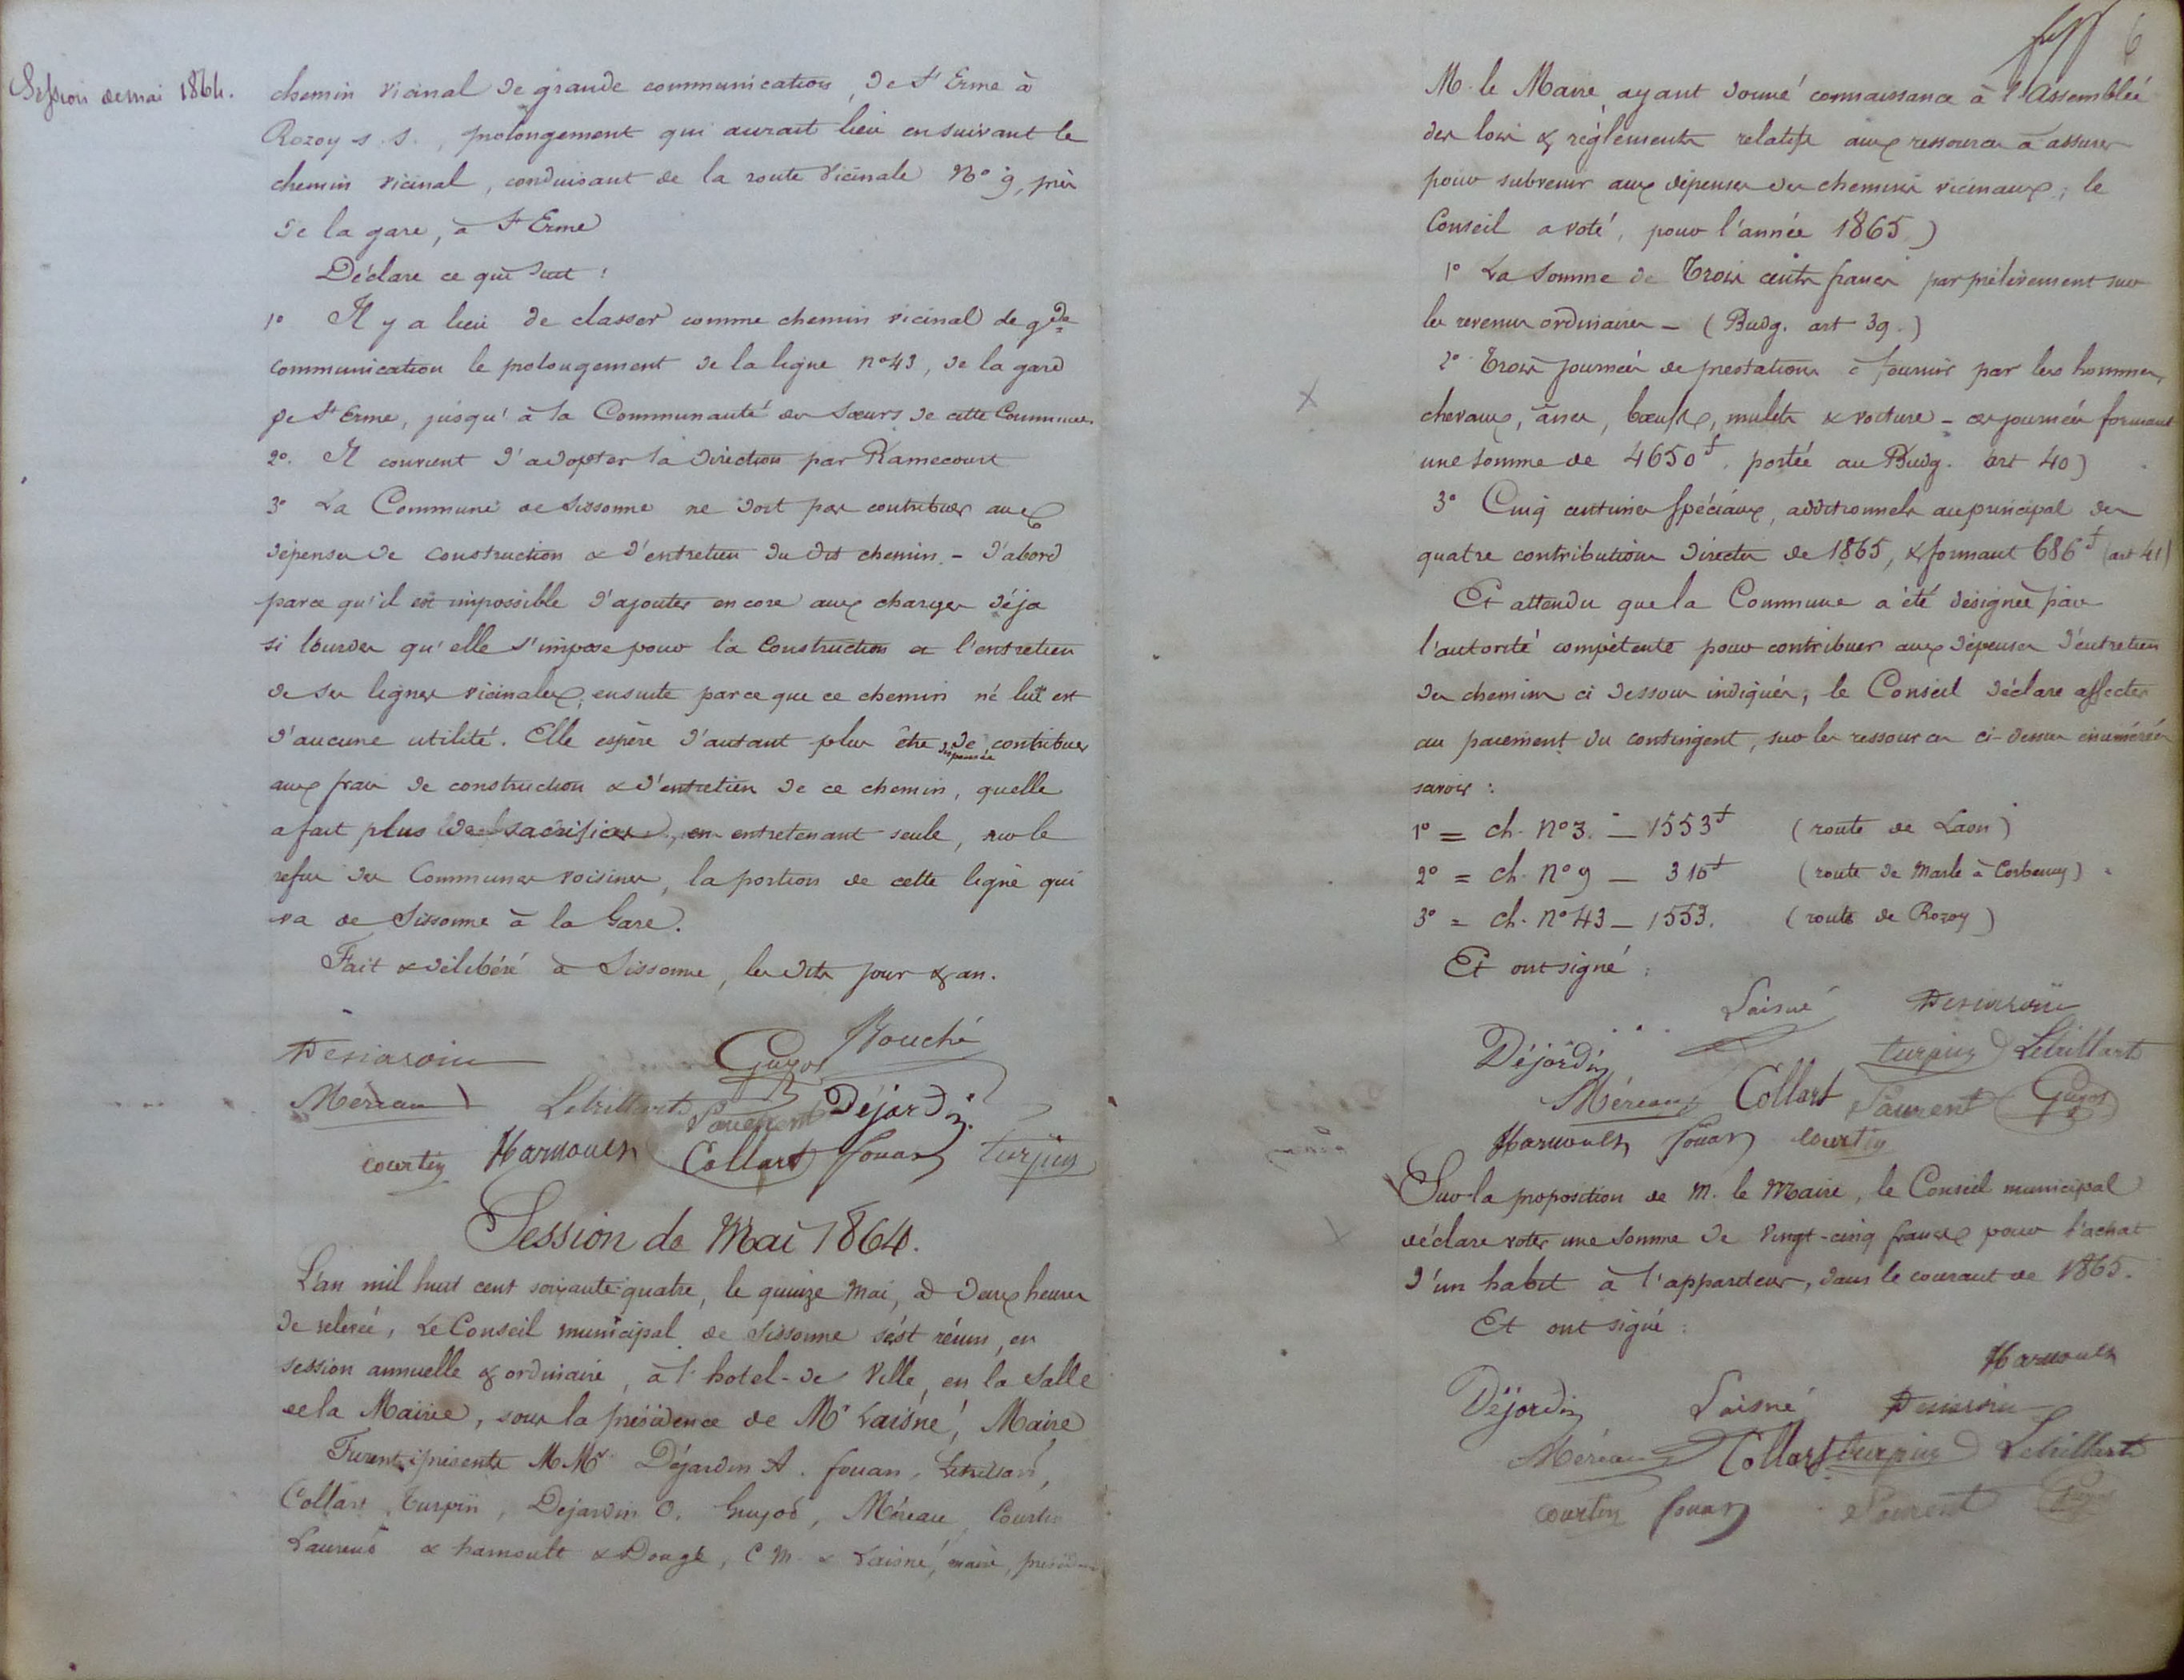 Session de mai 1864.
chemin vicinal de grande communication, de St Erme à
Rozoy s. S., prolongement qui aurait lieu en suivant le
chemin vicinal, conduisant de la route vicinale No 9, près
de la gare, à St Erme
Déclare ce qui suit :
1o Il y a lieu de classer comme chemin vicinal de gde
communication le prolongement de la ligne no 43, de la gare
de St Erme, jusqu'à la Communauté des Sœurs de cette Commune.
2o. Il convient d'adopter la direction par Ramecourt
3o La Commune de Sissonne ne doit pas contribuer aux
dépenses de construction & d'entretien du dit chemin. - D'abord
parce qu'il est impossible d'ajouter encore aux charges déja
si lourdes qu'elle s'impose pour la construction et l'entretien
de ses lignes vicinales; ensuite parce que ce chemin ne lui est
d'aucune utilité. Elle espère d'autant plus être dispensée de contribuer
aux frais de construction & d'entretien de ce chemin, quelle
a fait plus de sacrifices, en entretenant seule, sur le
refus des Communes voisines, la portion de cette ligne qui
va de Sissonne à la Gare.
Fait & délibéré à Sissonne, les dits jour & an.
Bouché
Guyot
Méreau Letrillart Laurent Déjardin
Courtin Harnoult Collart Fouan Turpin
Session de Mai 1864.
L'an mil huit cent soixante-quatre, le quinze mai, à deux heures
de relevée, Le Conseil municipal de Sissonne s'est réuni, en
session annuelle & ordinaire, à l'hotel-de Ville, en la Salle
de la Mairie, sous la présidence de Mr Laisné, Maire
Furent présents MMrs Déjardin A. fouan, Letrillart,
Collart, Turpin, Dejardin O. Guyot, Méreau, Courtin
Laurent & harnoult & Dougé, C. M. & Laisné, maire, président
6
M. le Maire, ayant donné connaissance à l'Assemblée
des lois & règlements relatifs aux ressources à assurer
pour subvenir aux dépenses des chemins vicinaux; le
Conseil a voté, pour l'année 1865)
1o La somme de Trois cents francs par prélèvement sur
les revenus ordinaires - (Budg. art 39.)
2o Trois journées de prestations à fournir par les hommes,
chevaux, ânes, bœufs, mulets & voiture - ces journées formant
une somme de 4650f, portée au Budg. art 40)
3o Cinq centimes spéciaux, additionnels au principal des
quatre contributions directes de 1865, & formant 686f (art 41)
Et attendu que la Commune a été désignée par
l'autorité compétente pour contribuer aux dépenses d'entretien
des chemins ci dessous indiqués, le Conseil déclare affecter
au paiement du contingent, sur les ressources ci-dessus énumérées
savoir :
1o = ch. no 3. - 1553f (route de Laon)
2o = ch. no 9 - 316f (route de Marle à Corbeny)
3o = ch. no 43 - 1553. (route de Rozoy)
Et ont signé :
Laisné
Déjardin Turpin Letrillart
Méreau Collart Laurent Guyot
Harnoult Fouan Courtin
Sur la proposition de M. le Maire, le Conseil municipal
déclare voter une somme de vingt-cinq francs pour l'achat
d'un habit à l'appariteur, dans le courant de 1865.
Et ont signé :
Harnoult
Déjardin Laisné
Méreau Collart Turpin Letrillart
Courtin Fouan Laurent Guyot